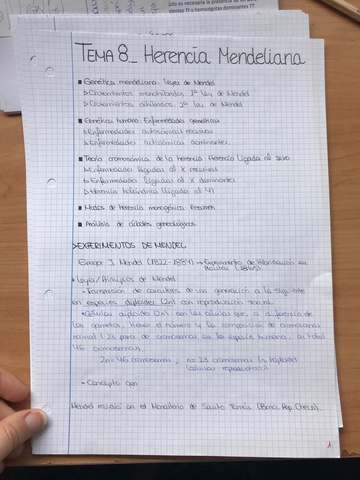 TEMA 8._ Herencia Mendeliana
■ Genética mendeliana: leyes de Mendel
▷ Cruzamientos monohíbridos: 1ª ley de Mendel
▷ Cruzamientos dihíbridos: 2ª ley de Mendel
■ Genética humana: Enfermedades genéticas
▷ Enfermedades autosómicas recesivas
▷ Enfermedades autosómicas dominantes
■ Teoría cromosómica de la herencia: Herencia ligada al sexo
▷ Enfermedades ligadas al X recesivas
▷ Enfermedades ligadas al X dominantes
▷ Herencia holándrica (ligada al Y)
■ Modos de herencia monogénica. Resumen
■ Análisis de árboles genealógicos
> EXPERIMENTOS DE MENDEL
J. Mendel (1822-1884) → Experimentos de Hibridación en
Plantas (1865)
Leyes/Principios de Mendel:
- Transmisión de caracteres de una generación a la siguiente
en especies diploides (2n) con reproducción sexual.
Células diploides (2n) son las células que, a diferencia de
los gametos, tienen el número y la composición de cromosomas
normal (23 pares de cromosomas en la especie humana, en total
46 cromosomas).
2n= 46 cromosomas; n= 23 cromosomas (n haploides)
(células reproductoras)
- Concepto gen
Mendel residió en el Monasterio de Santo Tomás (Brno, Rep. Checa).
1